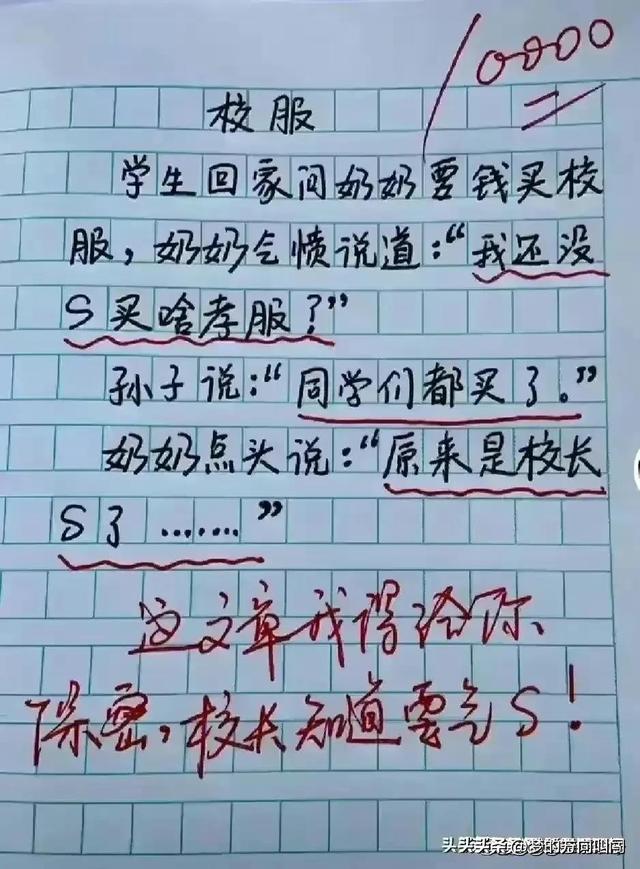 10000
校服
学生回家问奶奶要钱买校
服，奶奶气愤说道：“我还没
S买啥孝服？”
孙子说：“同学们都买了。”
奶奶点头说：“原来是校长
S了.......”
这文章我得给你
保密，校长知道要气S！